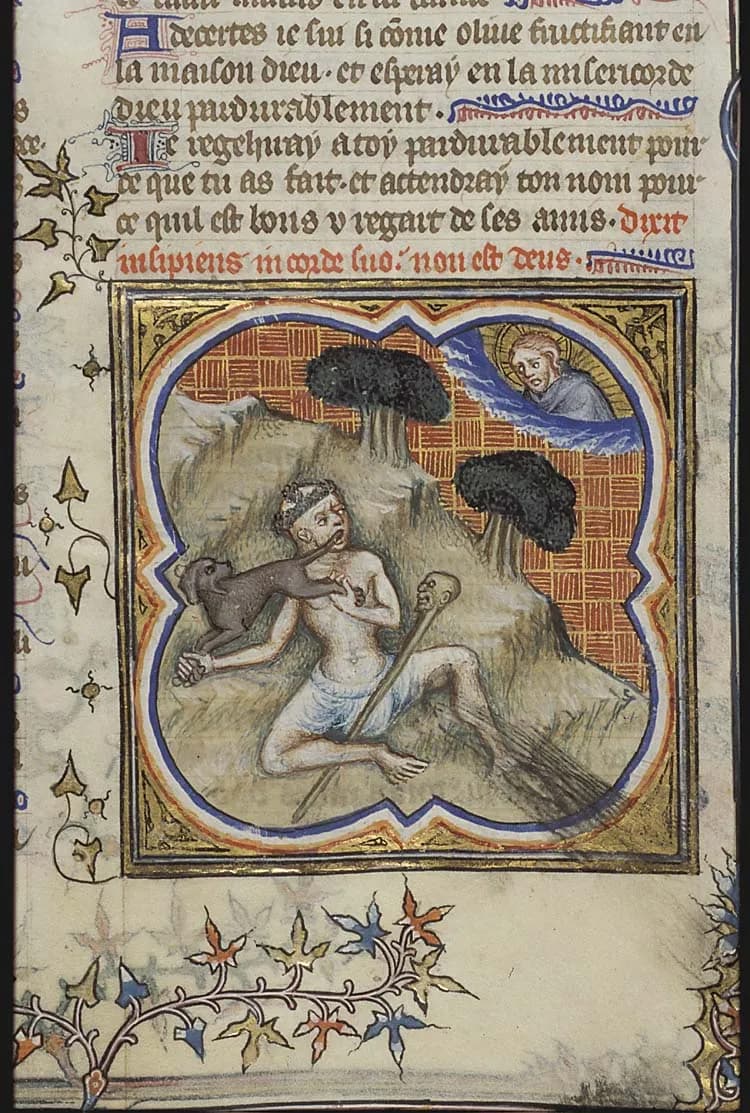 Adecertes ie sui si cōme oliue fructifiant en
la maison dieu · et esperay en la misericorde
dieu pardurablement ·
Je regehiray a toy pardurablement pour
ce que tu as fait · et attendray ton nom pour
ce quil est bons v regart de ses amis · dixit
insipiens in corde suo : non est deus ·